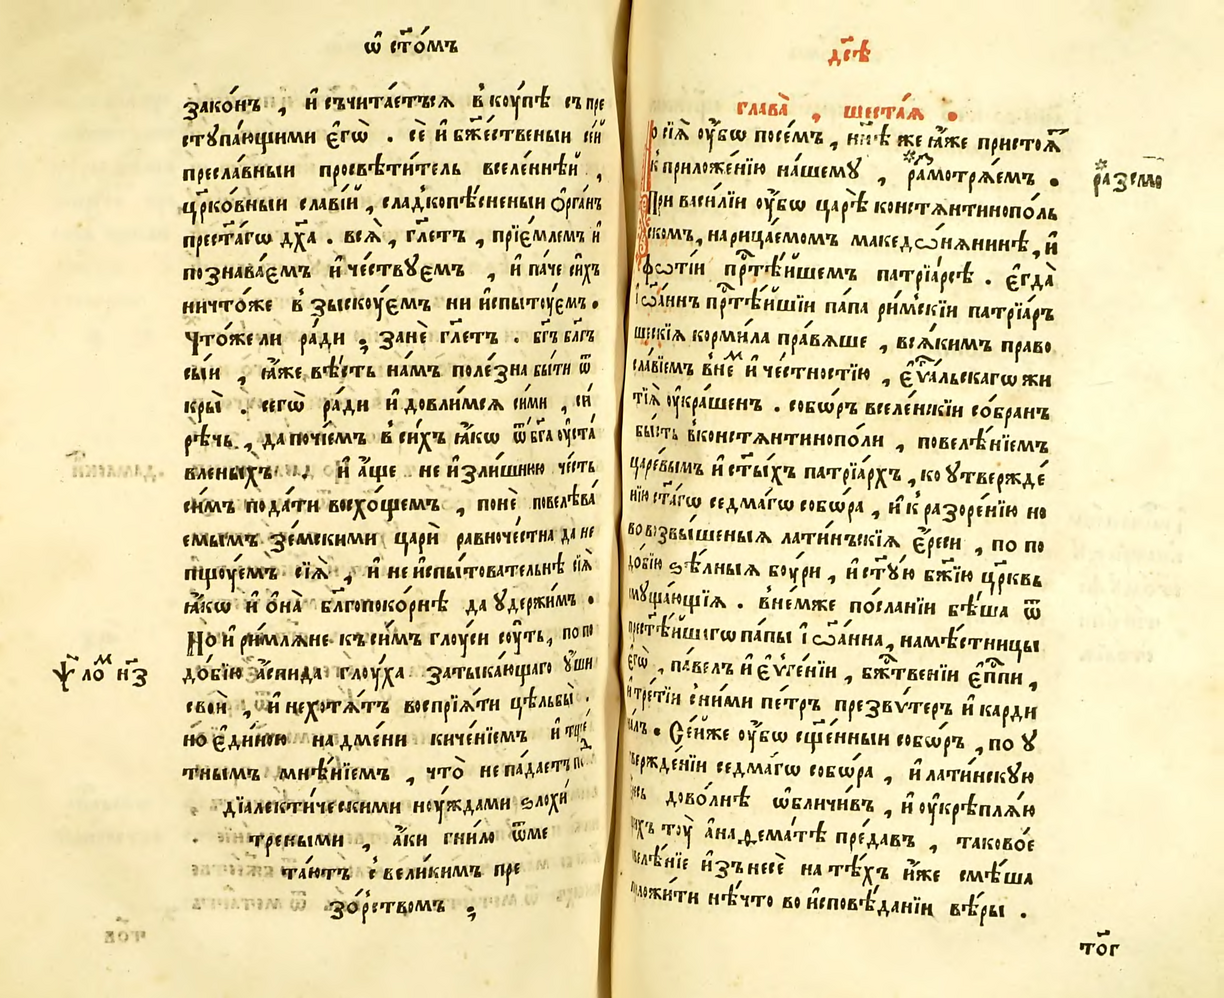 ѡ҆ ст҃о́мъ
зако́нъ , и҆ съчита́етъсѧ в коу́пѣ съ пре
ступа́ющими є҆гѡ̀ . се́ и҆ бж҃е́ственыи се́й
пресла́вныи просвѣти́тель вселе́ннѣи ,
цр҃ко́вныи сла́вїй , сладкопѣ́сненыи ѻ҆рга́нъ
прест҃а́гѡ дх҃а . всѧ̀ , гл҃етъ , прїе́млемъ и҆
познава́емъ и҆ че́ствꙋемъ , и҆ па́че си́хъ
ничто́же в зыскоу́емъ ни и҆спытоу́емъ .
Что́же ли ра́ди ; занѐ гл҃етъ . бг҃ъ бл҃гъ
сы́и , ꙗ҆́же вѣ́сть на́мъ поле́зна бы́ти ѿ
кры̀ . сегѡ̀ ра́ди и҆ довли́мсѧ си́ми , си́
рѣчь , да почі́емъ в си́хъ ꙗ҆́кѡ ѿ бг҃а оу҆ста́
вленыхъ . и҆ а҆́ще не и҆зли́шнюю че́сть
си́мъ пода́ти восхо́щемъ , понѐ повелѣва́
емымъ зе́мскими царѝ равноче́стна да не
пщоу́емъ сїѧ̀ , и҆ не и҆спыто́вательнѣ сїѧ̀
ꙗ҆́кѡ и҆ ѻ҆на̀ бл҃гопоко́рнѣ да ꙋдержи́мъ .
Но и҆ ри́млѧне къ си́мъ глоу́си соу́ть , по по
до́бїю а҆́спида глоу́ха затыка́ющаго ꙋ҆́ши
своѝ , и҆ нехотѧ́тъ воспрїѧ́ти цѣльбы̀ .
но є҆ди́ною надме́ни киче́нїемъ и҆ тще́
тнымъ мнѣ́нїемъ , что̀ не па́даетъ по́д
дїалекти́ческими ноу́ждами ѕлохи́
треными , а҆́ки гни́ло ѿме
та́ютъ с вели́кимъ пре
зо́рствомъ ;
ѱало́м н҃з
дс҃ѣ
глава̀ , шеста́ѧ .
о сїѧ̀ оу҆́бѡ посе́мъ , нн҃ѣ же ꙗ҆́же пристоѧ́т
к приложе́нїю на́шемꙋ , рамотрѧ́емъ .
При васи́лїи оу҆́бѡ царѣ̀ констѧнтинопо́ль
скомъ , нарица́емомъ македѡ́нѧнинѣ , и҆
фѡ́тїи прт҃ѣ́йшемъ патрїа́рсѣ . є҆гда̀
і҆ѡа́ннъ прт҃ѣ́йшїи па́па ри́мскїи патрїа́ръ
шескїѧ корми́ла пра́вѧше , всѧ́кимъ право
сла́вїемъ внем и҆ че́стностїю , є҆ѵⷢ҇альскагѡ жи
тїѧ̀ оу҆кра́шенъ . собѡ́ръ вселе́нскїи со́бранъ
бы́сть вконстѧнтинопо́ли , повелѣ́нїемъ
царе́вымъ и҆ ст҃ы́хъ патрїа́рхъ , ко ꙋтвержде́
нїю ст҃а́гѡ седма́гѡ собѡ́ра , и҆ к разоре́нїю но
во возвы́шеныѧ лати́нъскїѧ є҆́реси , по по
до́бїю ѕѣ́лныѧ боу́ри , и҆ ст҃ꙋ́ю бж҃їю цр҃квь
мꙋща́ющїѧ . вне́мже посла́нїи бѣ́ша ѿ
прест҃ѣ́йшагѡ па́пы і҆ѡа́нна , намѣ́стницы
є҆гѡ̀ , па́велъ и҆ є҆ѵге́нїи , бж҃твенїи є҆пп҃и ,
и҆ тре́тїи с ни́ми пе́тръ презвѵ́теръ и҆ карди
на́лъ . Се́йже оу҆́бѡ сщ҃е́нныи собѡ́ръ , по ꙋ
твержде́нїи седма́гѡ собѡ́ра , и҆ лати́нскꙋю
дово́лнѣ ѡ҆бличи́въ , и҆ оу҆крѣплѧ́ю
тоу̀ а҆на́ѳематѣ преда́въ , таково́е
велѣ́нїе и҆зънесѐ на тѣ́хъ и҆̀же смѣ́ша
приложи́ти нѣ́что во и҆сповѣ́данїи вѣ́ры .
тог